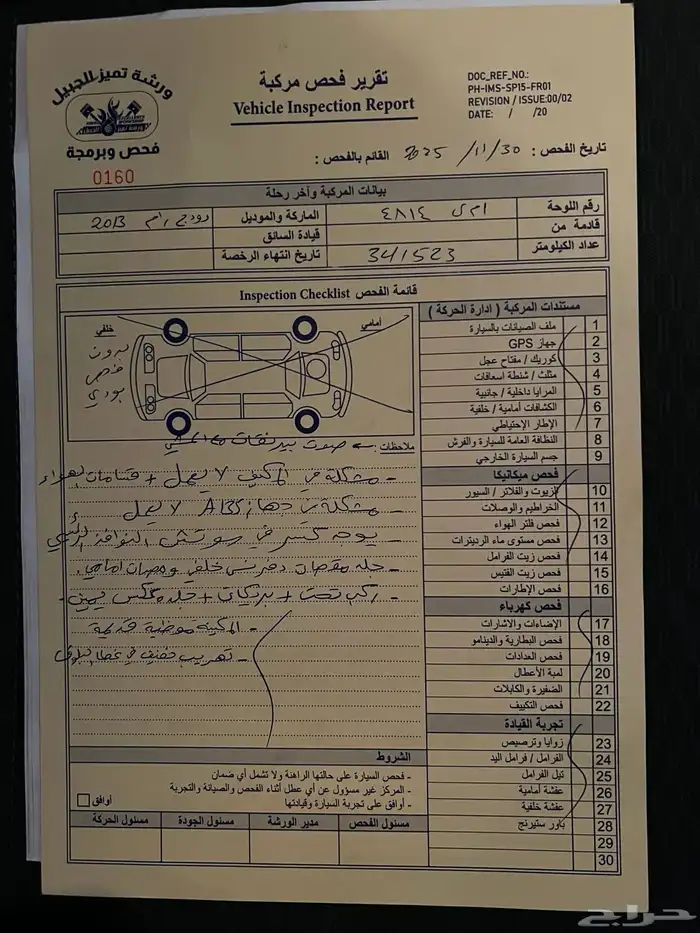 ورشة تميز الجبيل
فحص وبرمجة
0160
تقرير فحص مركبة
Vehicle Inspection Report
DOC_REF_NO.:
PH-IMS-SP15-FR01
REVISION / ISSUE:00/02
DATE: / /20
تاريخ الفحص : 30 / 11 / 2025 القائم بالفحص :
بيانات المركبة وآخر رحلة
رقم اللوحة ٤٨١٤ الماركة والموديل دودج رام 2013
قادمة من قيادة السائق
عداد الكيلومتر 341523 تاريخ انتهاء الرخصة
قائمة الفحص Inspection Checklist
أمامي
خلفي
بدون
فحص
بودي
ملاحظات :
- مشكلة في المكيف لا يعمل + قسامات الهواء
- مشكلة في جهاز ABS لا يعمل
- يوجد كسر في سوتش النوافذ الرئيسي
- المكينة موضبة قديمة
مستندات المركبة ( ادارة الحركة )
1 ملف الصيانات بالسيارة
2 جهاز GPS
3 كوريك / مفتاح عجل
4 مثلث / شنطة اسعافات
5 المرايا داخلية / جانبية
6 الكشافات أمامية / خلفية
7 الإطار الإحتياطي
8 النظافة العامة للسيارة والفرش
9 جسم السيارة الخارجي
فحص ميكانيكا
10 الزيوت والفلاتر / السيور
11 الخراطيم والوصلات
12 فحص فلتر الهواء
13 فحص مستوى ماء الرديترات
14 فحص زيت الفرامل
15 فحص زيت القتيس
16 فحص الإطارات
فحص كهرباء
17 الإضاءات والاشارات
18 فحص البطارية والدينامو
19 فحص العدادات
20 لمبة الأعطال
21 الضفيرة والكابلات
22 فحص التكييف
تجربة القيادة
23 زوايا وترصيص
24 الفرامل / فرامل اليد
25 تيل الفرامل
26 عفشة أمامية
27 عفشة خلفية
28 باور ستيرنج
29
30
الشروط
- فحص السيارة على حالتها الراهنة ولا تشمل أي ضمان
- المركز غير مسؤول عن أي عطل أثناء الفحص والصيانة والتجربة
- أوافق على تجربة السيارة وقيادتها
أوافق
مسئول الفحص مدير الورشة مسئول الجودة مسئول الحركة
حراج